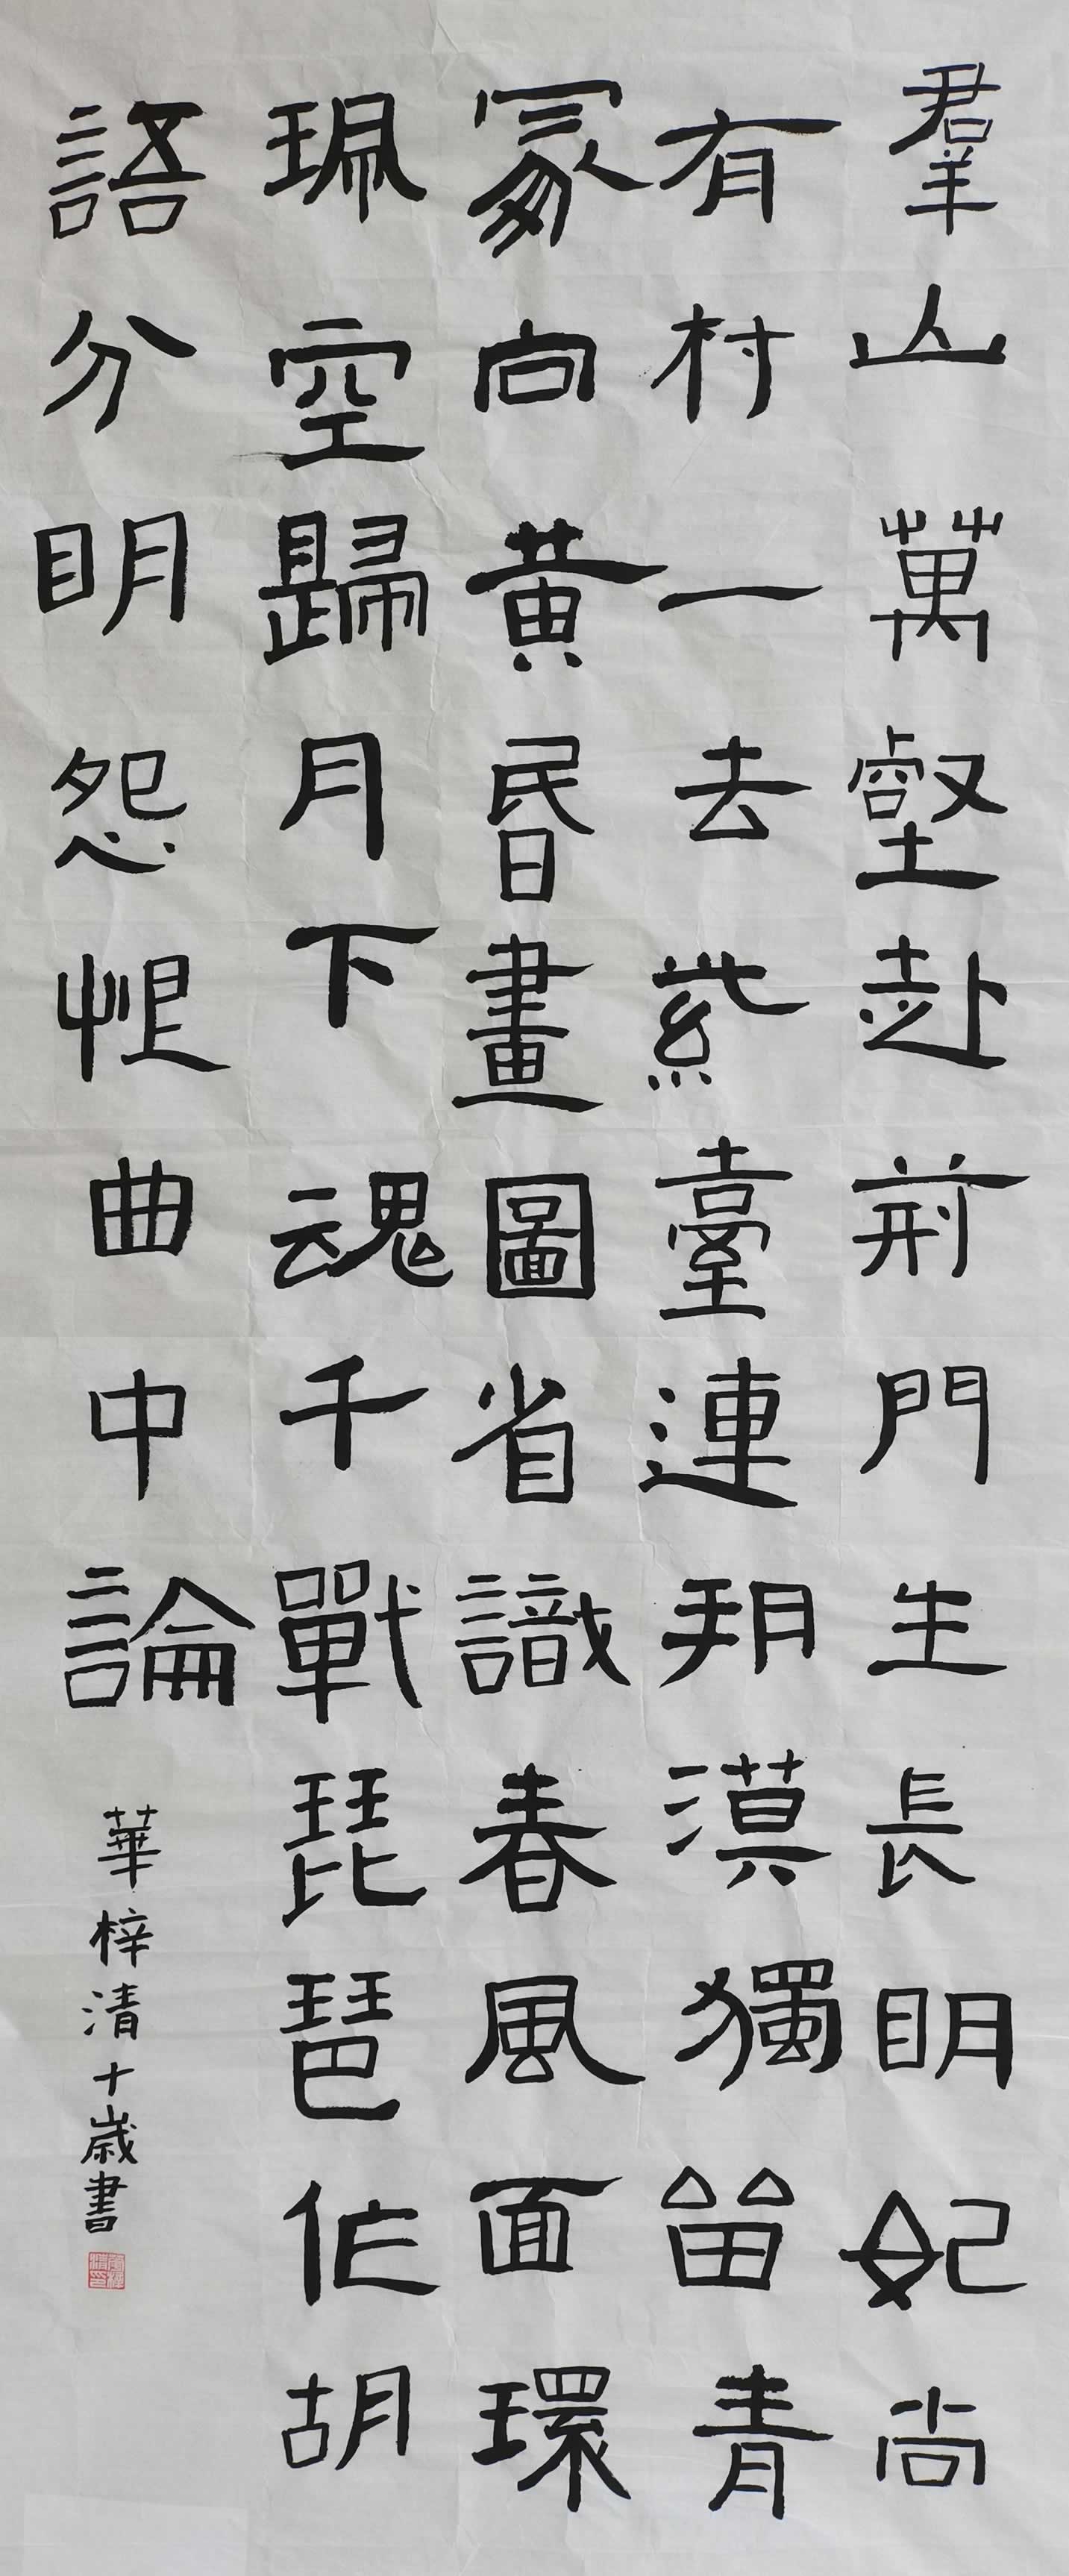 羣山萬壑赴荊門生長明妃尚
有村一去紫臺連朔漠獨留青
冢向黃昏畫圖省識春風面環
珮空歸月下魂千戰琵琶作胡
語分明怨恨曲中論
華梓清十歲書